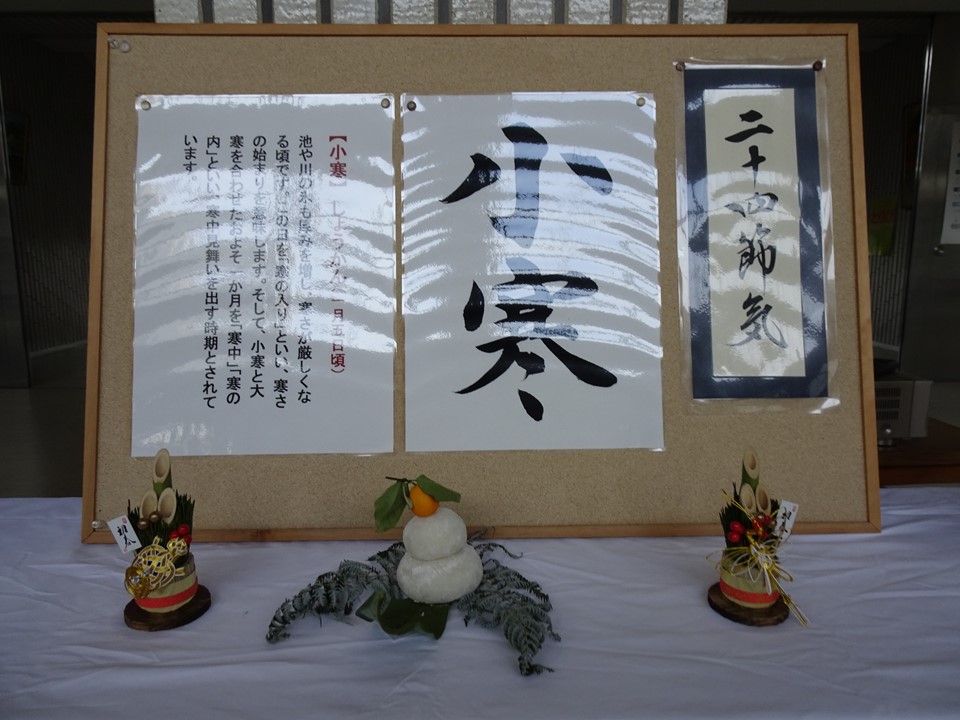 二十四節気
小寒
【小寒】 しょうかん（一月五日頃）
池や川の氷も厚みを増し、寒さが厳しくな
る頃です。この日を「寒の入り」といい、寒さ
の始まりを意味します。そして、小寒と大
寒を合わせたおよそ一か月を「寒中」「寒の
内」といい、寒中見舞いを出す時期とされて
います。